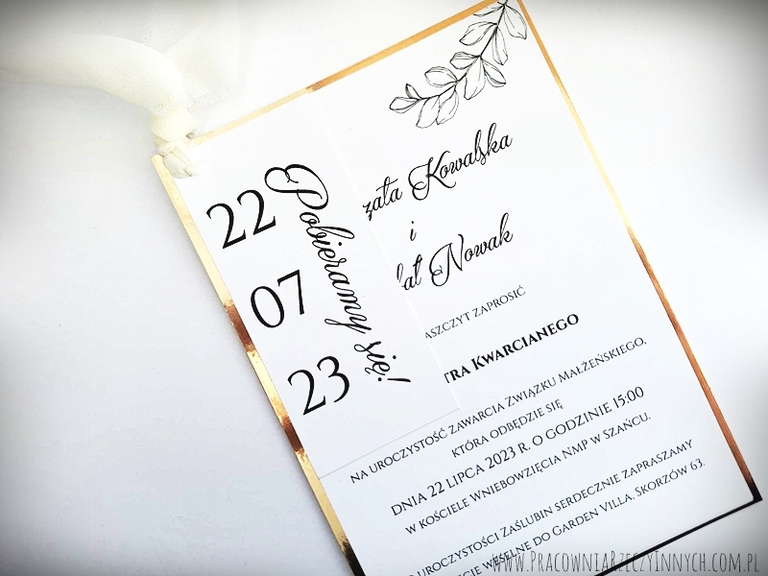 22
07
23
Pobieramy się!
zata Kowalska
i
Nowak
ASZCZYT ZAPROSIĆ
TRA KWARCIANEGO
NA UROCZYSTOŚĆ ZAWARCIA ZWIĄZKU MAŁŻEŃSKIEGO,
KTÓRA ODBĘDZIE SIĘ
DNIA 22 LIPCA 2023 R. O GODZINIE 15:00
W KOŚCIELE WNIEBOWZIĘCIA NMP W SZAŃCU.
UROCZYSTOŚCI ZAŚLUBIN SERDECZNIE ZAPRASZAMY
WESELNE DO GARDEN VILLA, SKORZÓW 63.
WWW.PRACOWNIARZECZYINNYCH.COM.PL